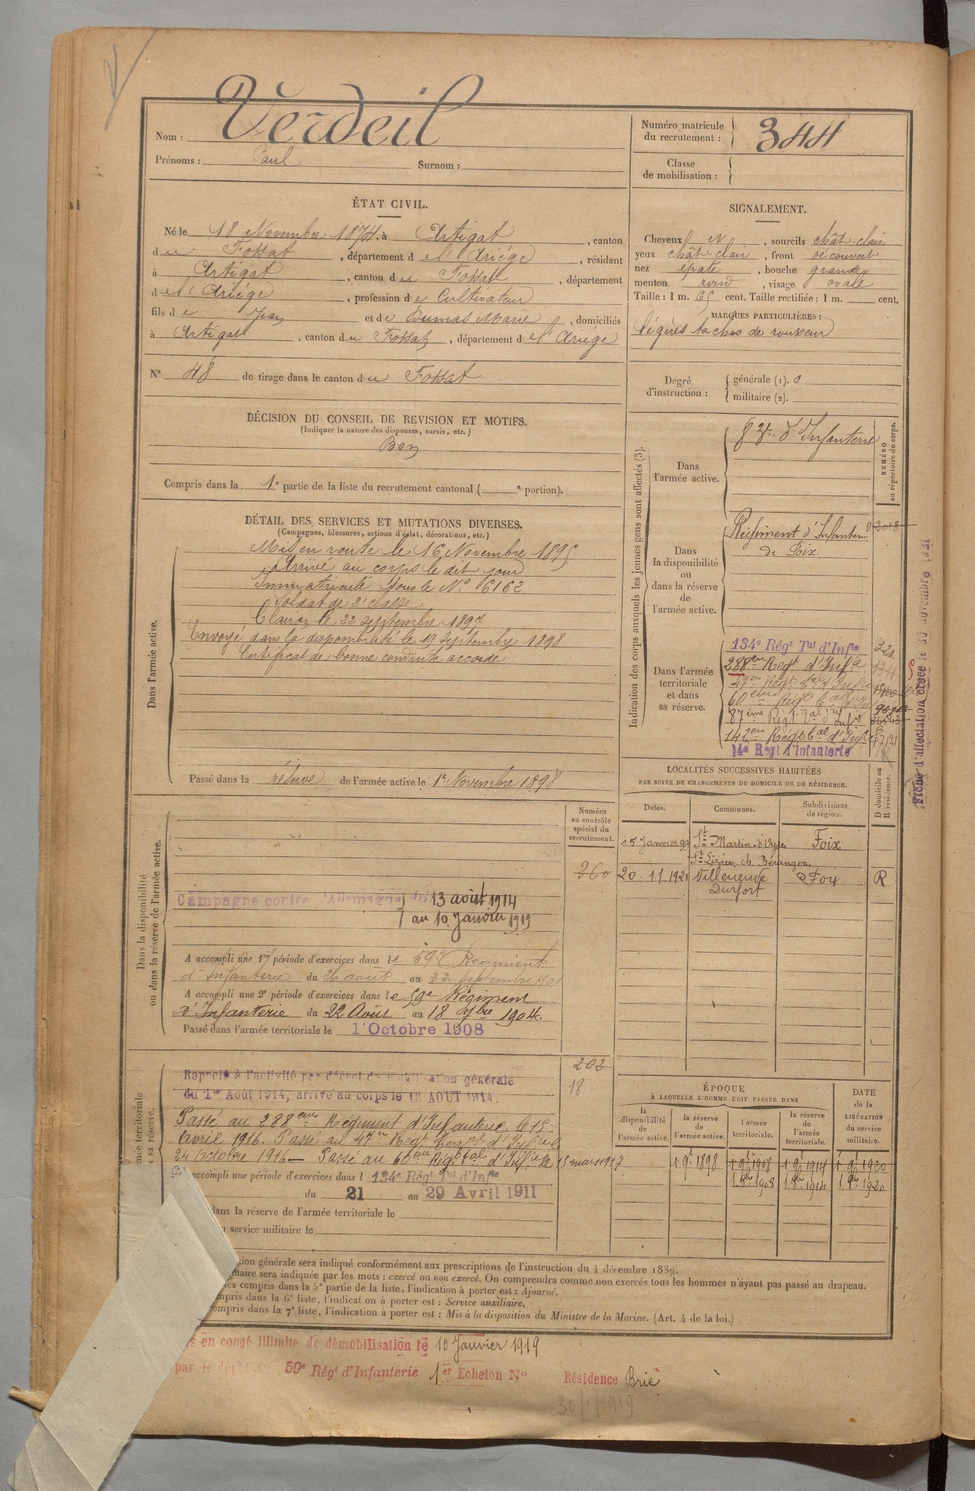 Nom : Verdeil
Prénoms : Paul Surnom :
Numéro matricule du recrutement : 344
Classe de mobilisation :
ÉTAT CIVIL.
Né le 18 Novembre 1874, à Artigat, canton
du Fossat, département de l'Ariège, résidant
à Artigat, canton du Fossat, département
de l'Ariège, profession de Cultivateur
fils de Jean et de Dumas Marie, domiciliés
à Artigat, canton du Fossat, département de l'Ariège
N° 48 de tirage dans le canton du Fossat
DÉCISION DU CONSEIL DE REVISION ET MOTIFS.
(Indiquer la nature des dispenses, sursis, etc.)
Bon
Compris dans la 1e partie de la liste du recrutement cantonal ( e portion).
SIGNALEMENT.
Cheveux N, sourcils chât-clair
yeux chât-clair, front découvert
nez épaté, bouche grande
menton rond, visage ovale
Taille : 1 m. 65 cent. Taille rectifiée : 1 m. cent.
MARQUES PARTICULIÈRES :
légères taches de rousseur
Degré d'instruction : générale (1). 0
militaire (2).
DÉTAIL DES SERVICES ET MUTATIONS DIVERSES.
(Campagnes, blessures, actions d'éclat, décorations, etc.)
Dans l'armée active.
Mis en route le 16 Novembre 1895
Arrivé au corps le dit jour
Immatriculé sous le N° 6162
Soldat de 2e classe
Clairon le 22 septembre 1897
Envoyé dans la disponibilité le 19 septembre 1898
Certificat de bonne conduite accordé
Passé dans la réserve de l'armée active le 1er Novembre 1898
Indication des corps auxquels les jeunes gens sont affectés (3).
NUMÉRO au répertoire du corps.
Dans l'armée active.
d'Infanterie
Dans la disponibilité ou dans la réserve de l'armée active.
Régiment d'Infanterie
de Foix
Dans l'armée territoriale et dans sa réserve.
134e Régt Tal d'Infie
288eme Regt d'Infie
87ème Régt
142eme Régt
14e Régt d'Infanterie
Fiche d'affectation
LOCALITÉS SUCCESSIVES HABITÉES
PAR SUITE DE CHANGEMENTS DE DOMICILE OU DE RÉSIDENCE.
Dates. Communes. Subdivisions de région. D domicile ou R résidence.
15 Janvier 99 St Martin-d'Oydes Foix
St Lizier, ch. Béranger.
20-11 1921 Villeneuve Durfort Foix R
Numéro au contrôle spécial du recrutement.
260
Dans la disponibilité ou dans la réserve de l'armée active.
Campagne contre l'Allemagne du 13 août 1914
au 10 janvier 1919
A accompli une 1re période d'exercices dans le 59e Régiment
d'Infanterie du 26 août au 22 Septembre 1901
A accompli une 2e période d'exercices dans le 59e Régiment
d'Infanterie du 22 Août au 18 7bre 1904.
Passé dans l'armée territoriale le 1 Octobre 1908
202
18
Rappelé à l'activité par décret de mobilisation générale
du 1er Août 1914, arrivé au corps le 13 AOUT 1914.
Passé au 288eme Régiment d'Infanterie le 15
Avril 1916. Passé au 47eme Régt d'Infie le
24 octobre 1916 — Passé au 60eme Régt d'Infie le 15 mars 1917
accompli une période d'exercices dans l 134e Régt Tal d'Infie
du 21 au 29 Avril 1911
dans la réserve de l'armée territoriale le
service militaire le
ÉPOQUE
À LAQUELLE L'HOMME DOIT PASSER DANS
la disponibilité de l'armée active. la réserve de l'armée active. l'armée territoriale. la réserve de l'armée territoriale. DATE de la LIBÉRATION du service militaire.
1 9e 1898 1 9e 1908 1 9e 1914 1 9e 1920
1 8e 1908 1 8e 1914 1 8e 1920
tion générale sera indiqué conformément aux prescriptions de l'instruction du 4 décembre 1889.
taire sera indiquée par les mots : exercé ou non exercé. On comprendra comme non exercés tous les hommes n'ayant pas passé au drapeau.
es compris dans la 5e partie de la liste, l'indication à porter est : Ajourné.
mpris dans la 6e liste, l'indication à porter est : Service auxiliaire.
compris dans la 7e liste, l'indication à porter est : Mis à la disposition du Ministre de la Marine. (Art. 4 de la loi.)
s en congé illimité de démobilisation le 10 Janvier 1919
par le dépôt du 59e Régt d'Infanterie 1er Echelon N° Résidence Brie